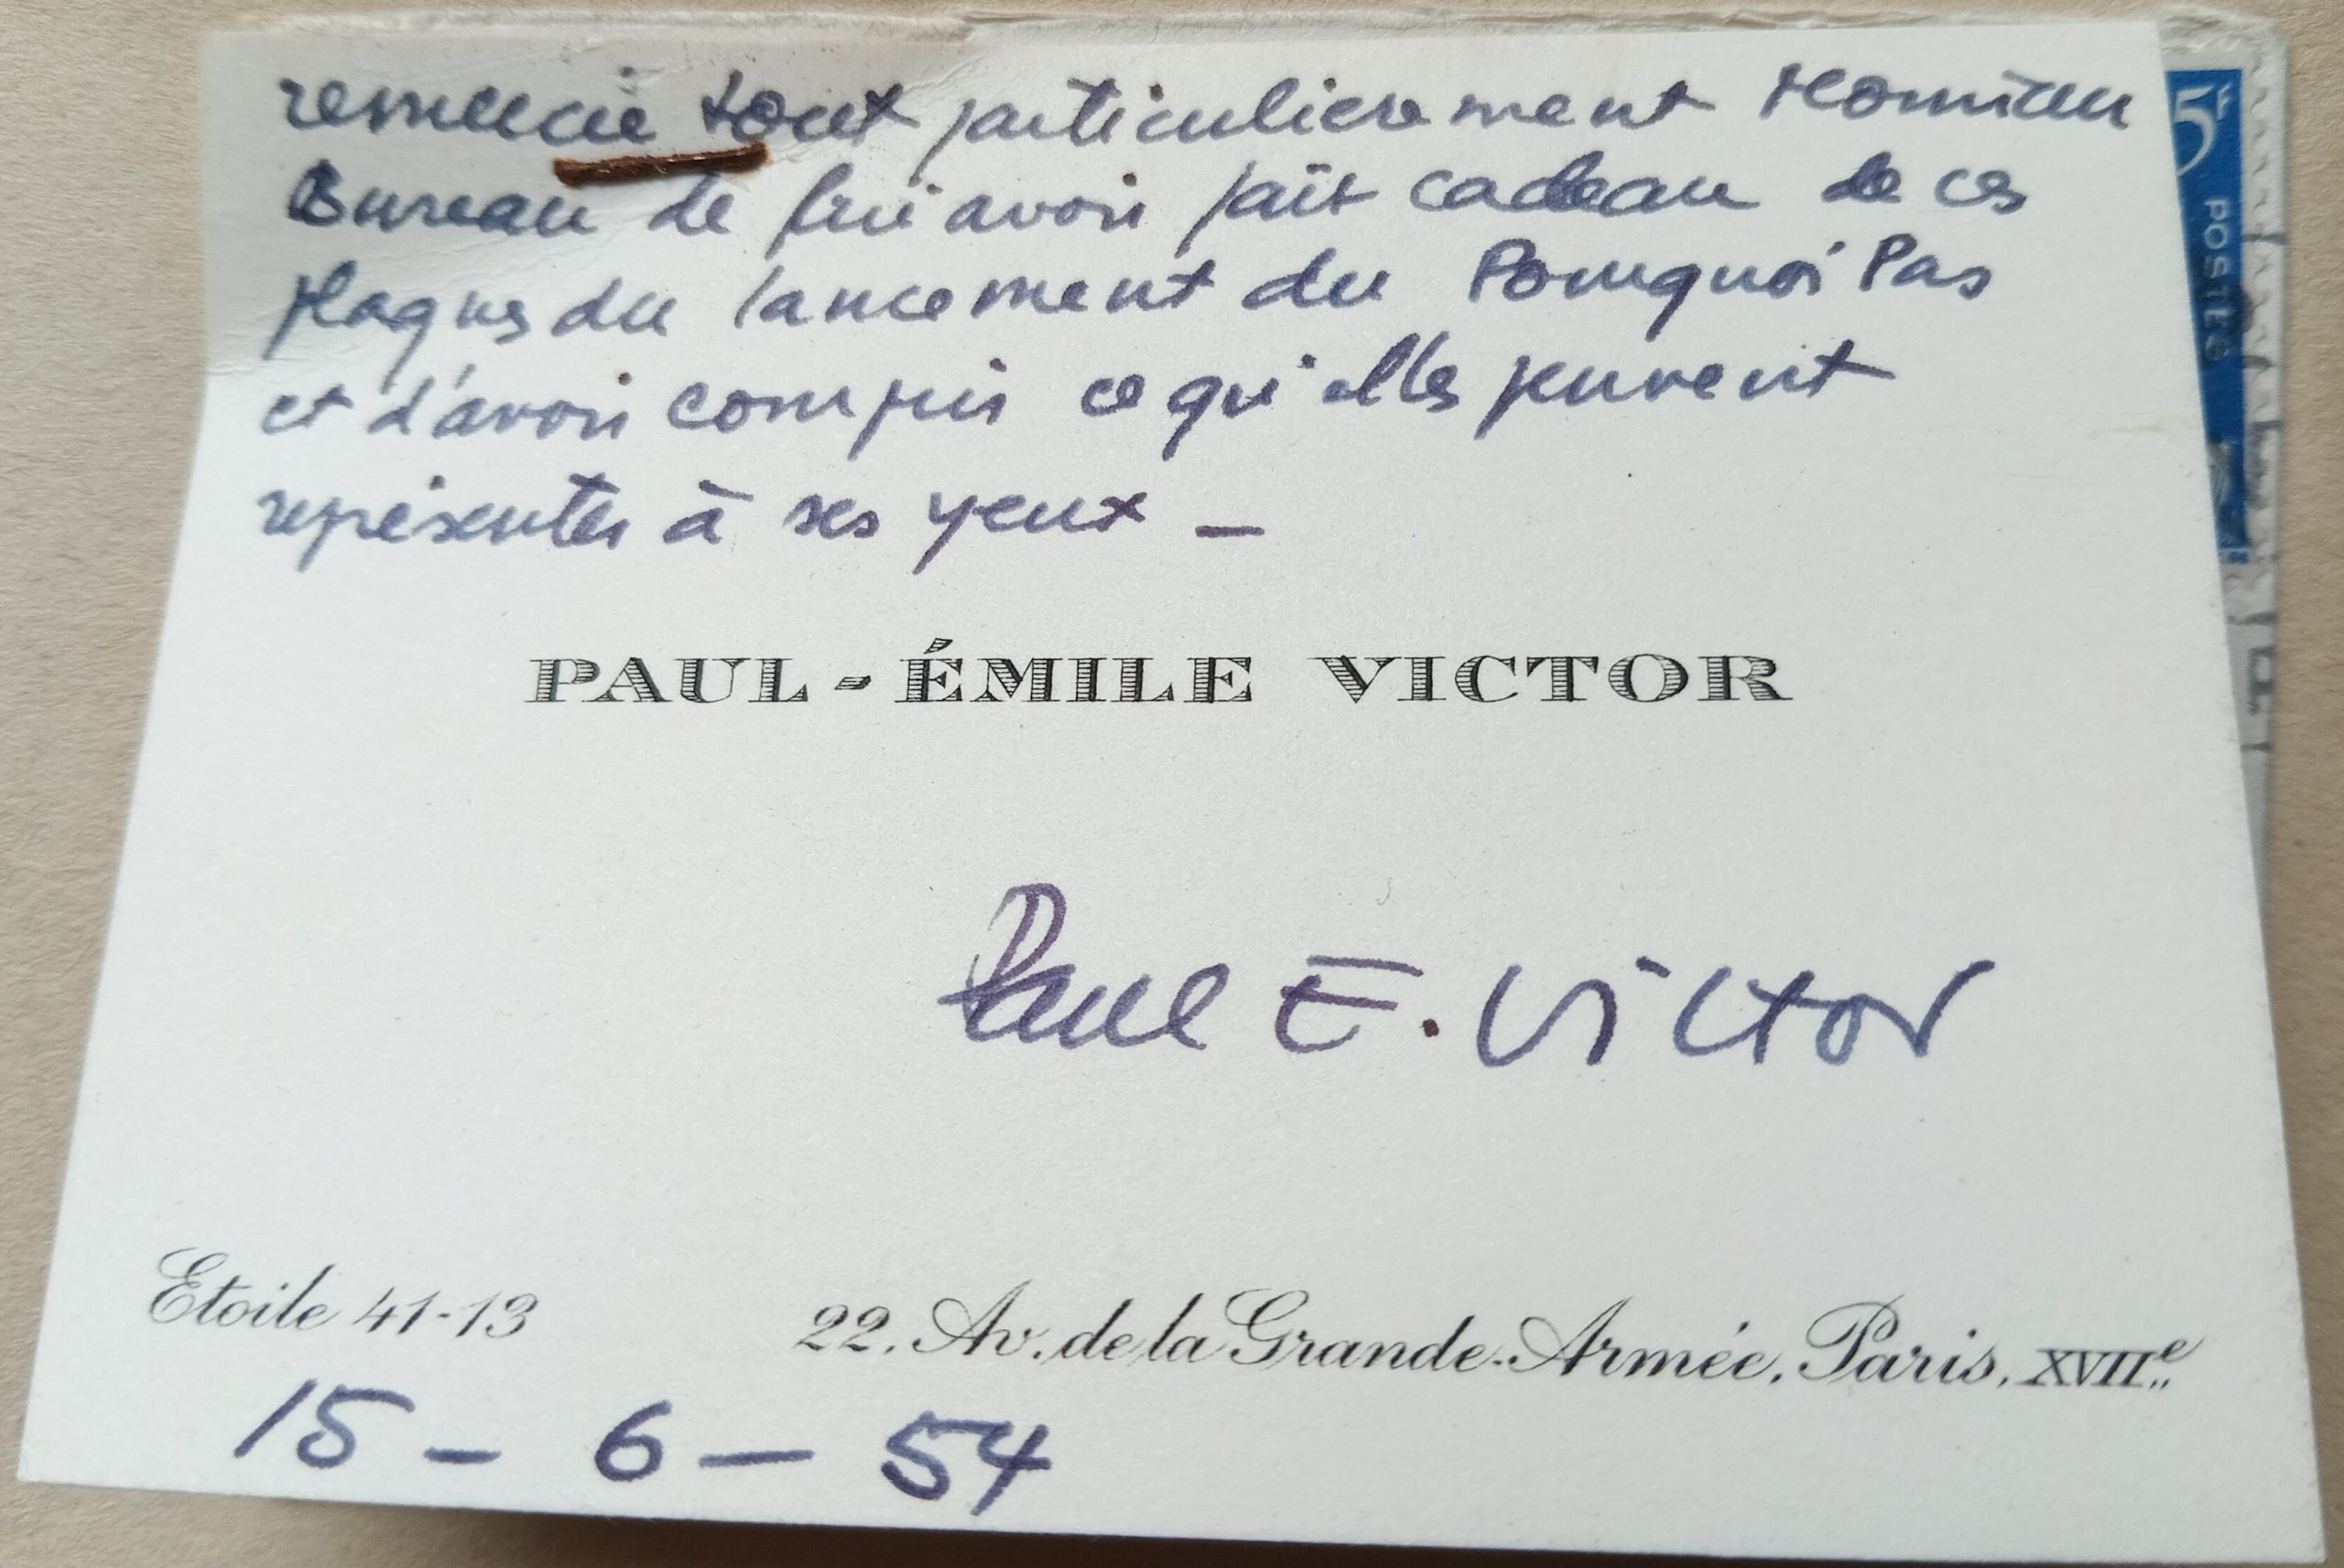 remercie tout particulièrement Monsieur
Bureau de lui avoir fait cadeau de ces
plaques du lancement du Pourquoi Pas
et d'avoir compris ce qu'elles peuvent
représenter à ses yeux —
PAUL-ÉMILE VICTOR
Paul E. Victor
Etoile 41-13
22, Av. de la Grande-Armée, Paris, XVIIe
15 - 6 - 54
5f
POSTES